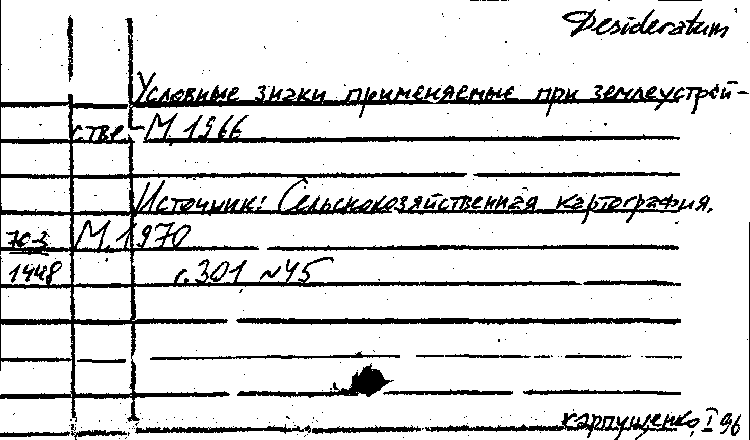 Desideratum
Условные знаки применяемые при землеустрой-
стве.- М. 1966
Источник: Сельскохозяйственная картография.
М. 1970
70-3
1448
с. 301 №45
Карпущенко, I 96